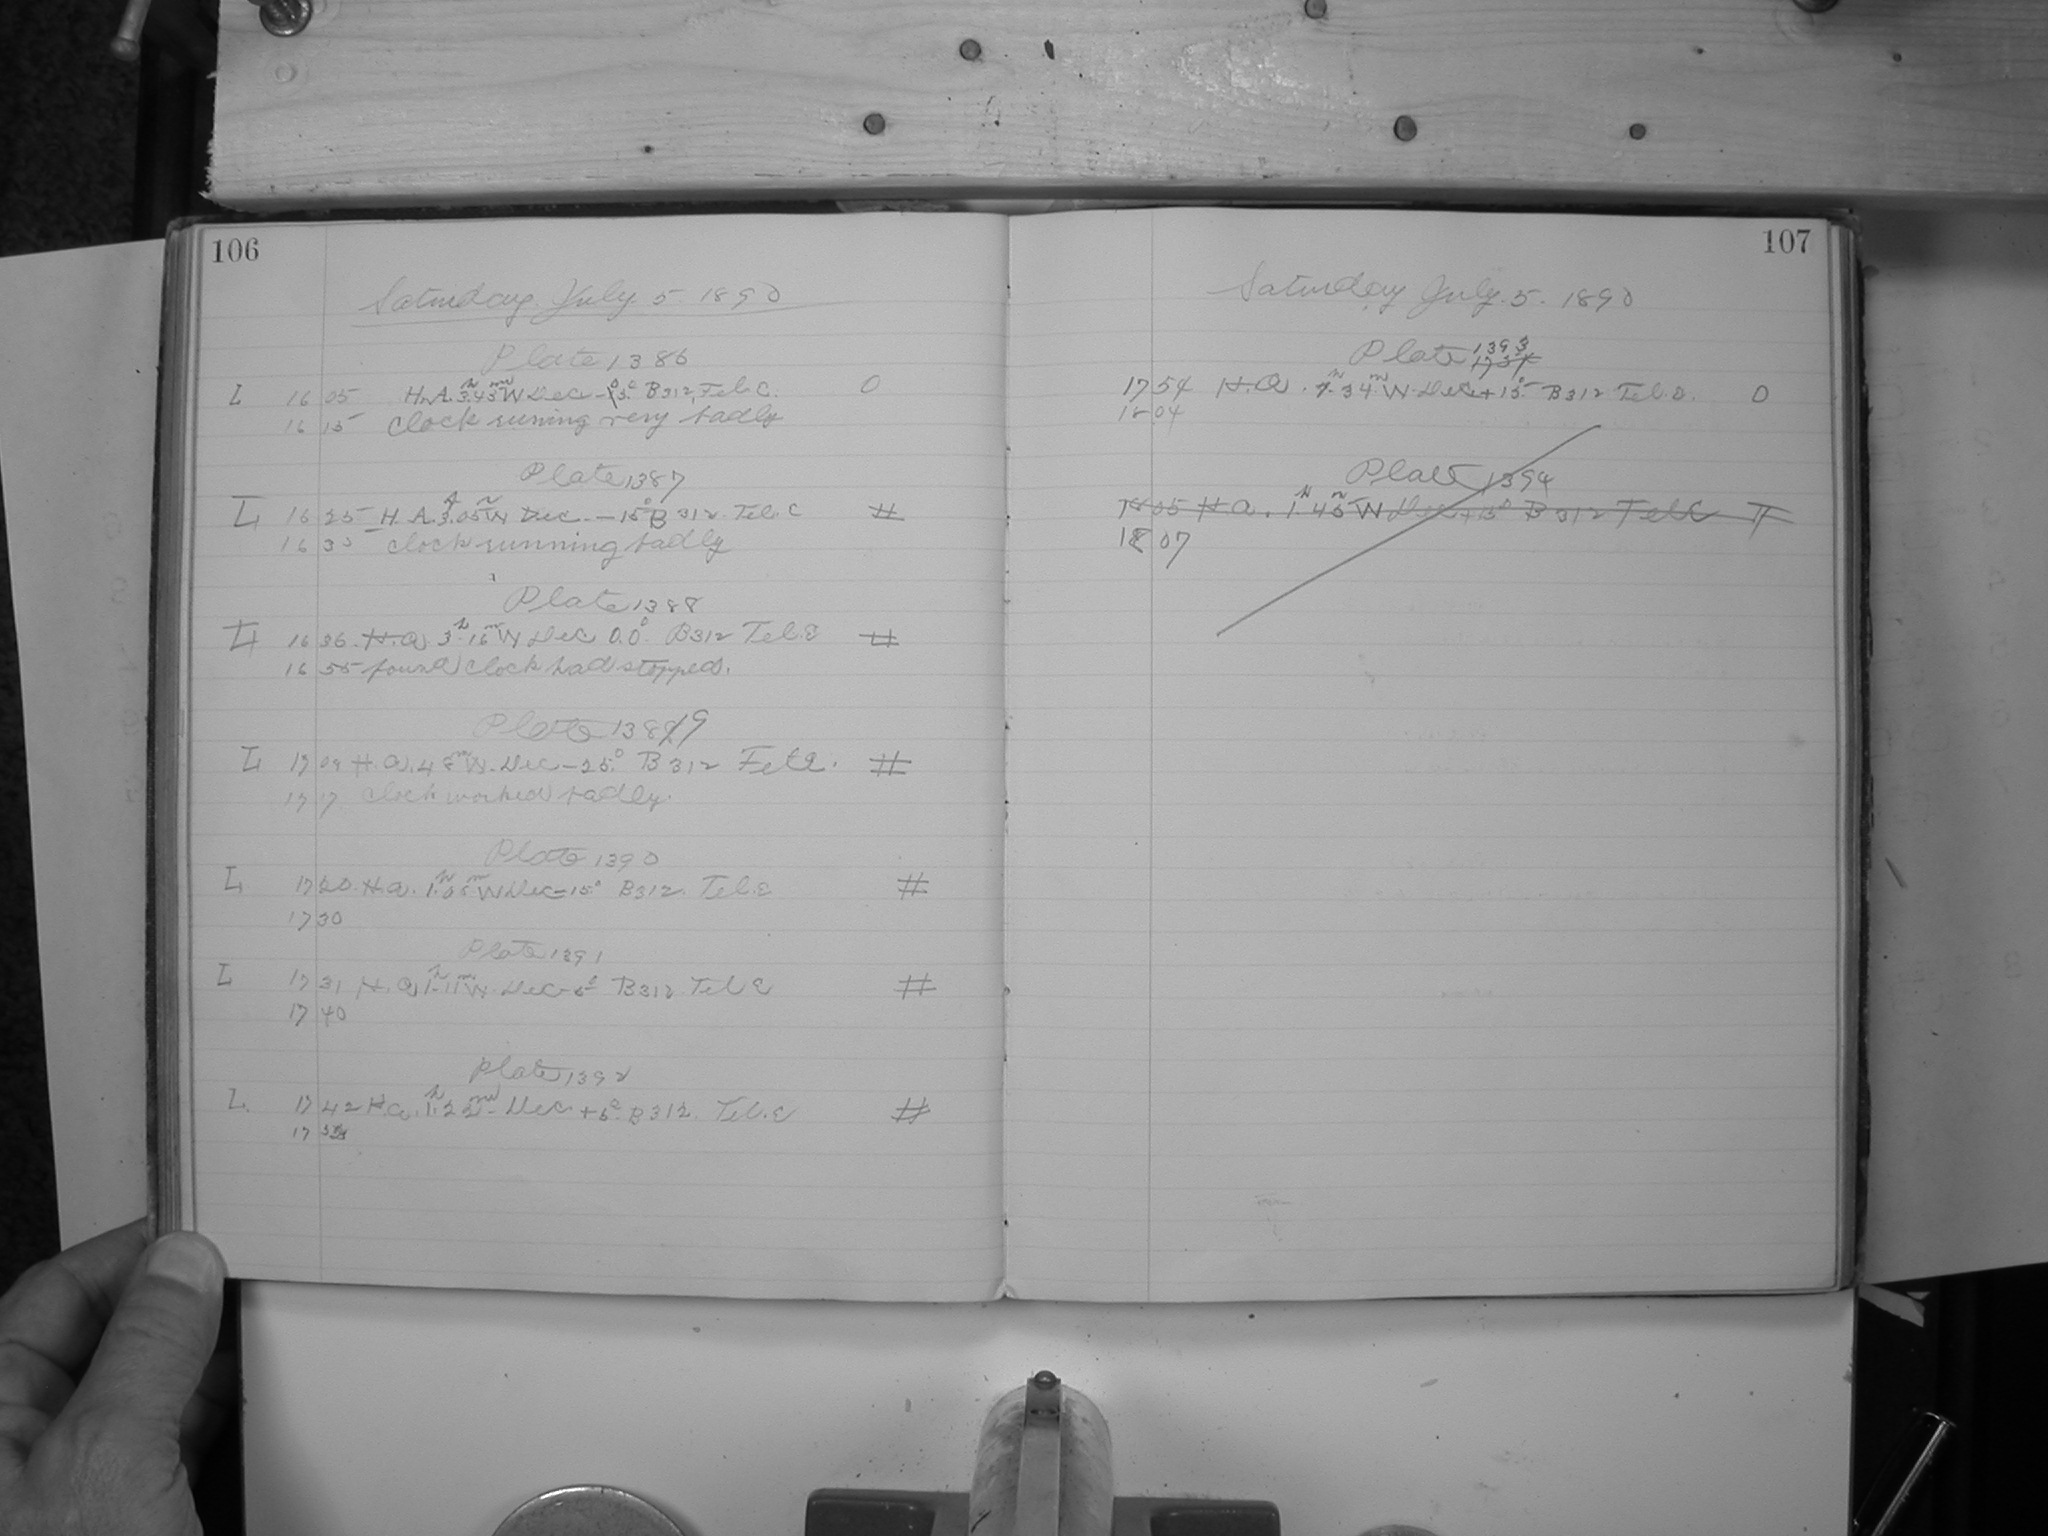 106
Saturday July 5 1890
Plate 1386
L 16 05 H.A. 3h.43m W Dec B312, Tel. C. O
16 15 clock runing very badly
Plate 1387
L 16 25 H.A. 3h.05m W Dec. -15° B 312. Tel. C #
16 35 clock running badly
Plate 1388
L 16 36 H.a. 3h.16m W Dec 0.0° B312 Tel. E #
16 55 found clock had stopped.
Plate 1389
L 17 09 H.a. 48m W. Dec -25.° B 312 Tel E. #
17 17 clock worked badly.
Plate 1390
L 17 20. H.a. 1h.05m W Dec -15° B312. Tel. E #
17 30
Plate 1391
L 17 31 H.a. 1h.11m W. Dec -5° B312 Tel E #
17 40
Plate 1392
L. 17 42 H a. 1h.22m Dec +5° B312. Tel. E #
17
107
Saturday July. 5. 1890
Plate 1393
17 54 H.a. 34m W. Dec +15° B312 Tel. O
18 04
Plate 1394
18 05 H a. 1h 45m W Dec +15° B 312 Tel E
18 07